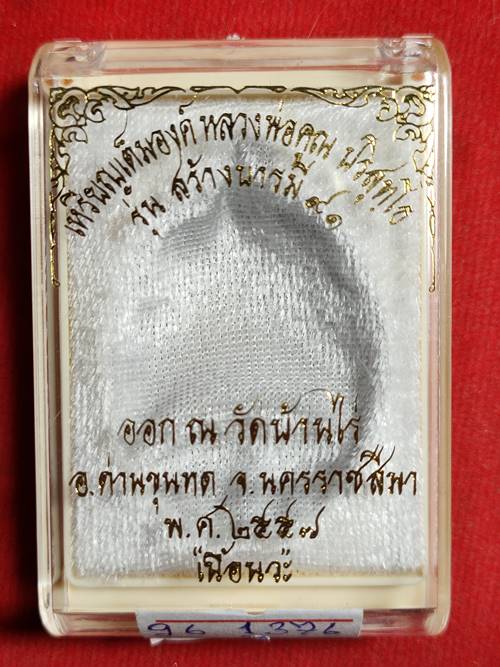 เหรียญเต็มองค์ หลวงพ่อคูณ ปริสุทฺโธ
รุ่น สร้างบารมี ๙๑
ออก ณ วัดบ้านไร่
อ.ด่านขุนทด จ.นครราชสีมา
พ.ศ. ๒๕๕๗
"เนื้อนวะ"